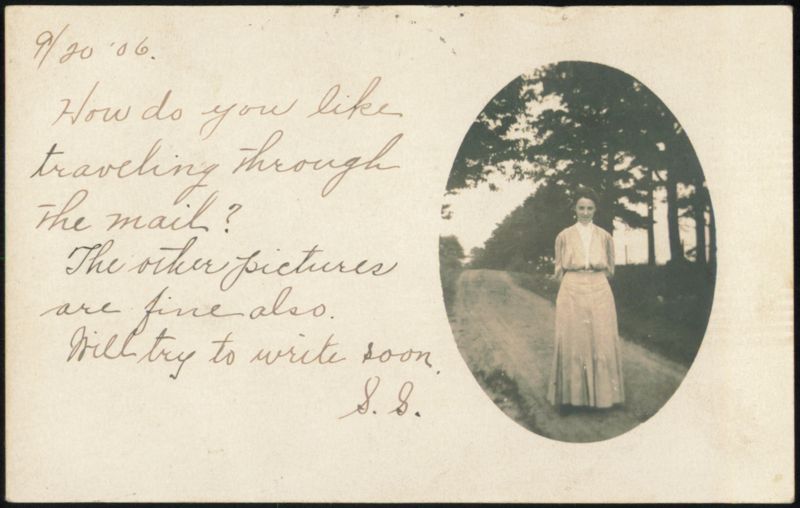 9/20 '06.
How do you like
traveling through
the mail?
The other pictures
are fine also.
Will try to write soon.
S. S.